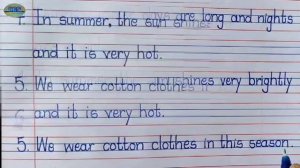 In summer, the sun shines are long and nights
and it is very hot.
5. We wear cotton clothes shines very brightly
and it is very hot.
5. We wear cotton clothes in this season.